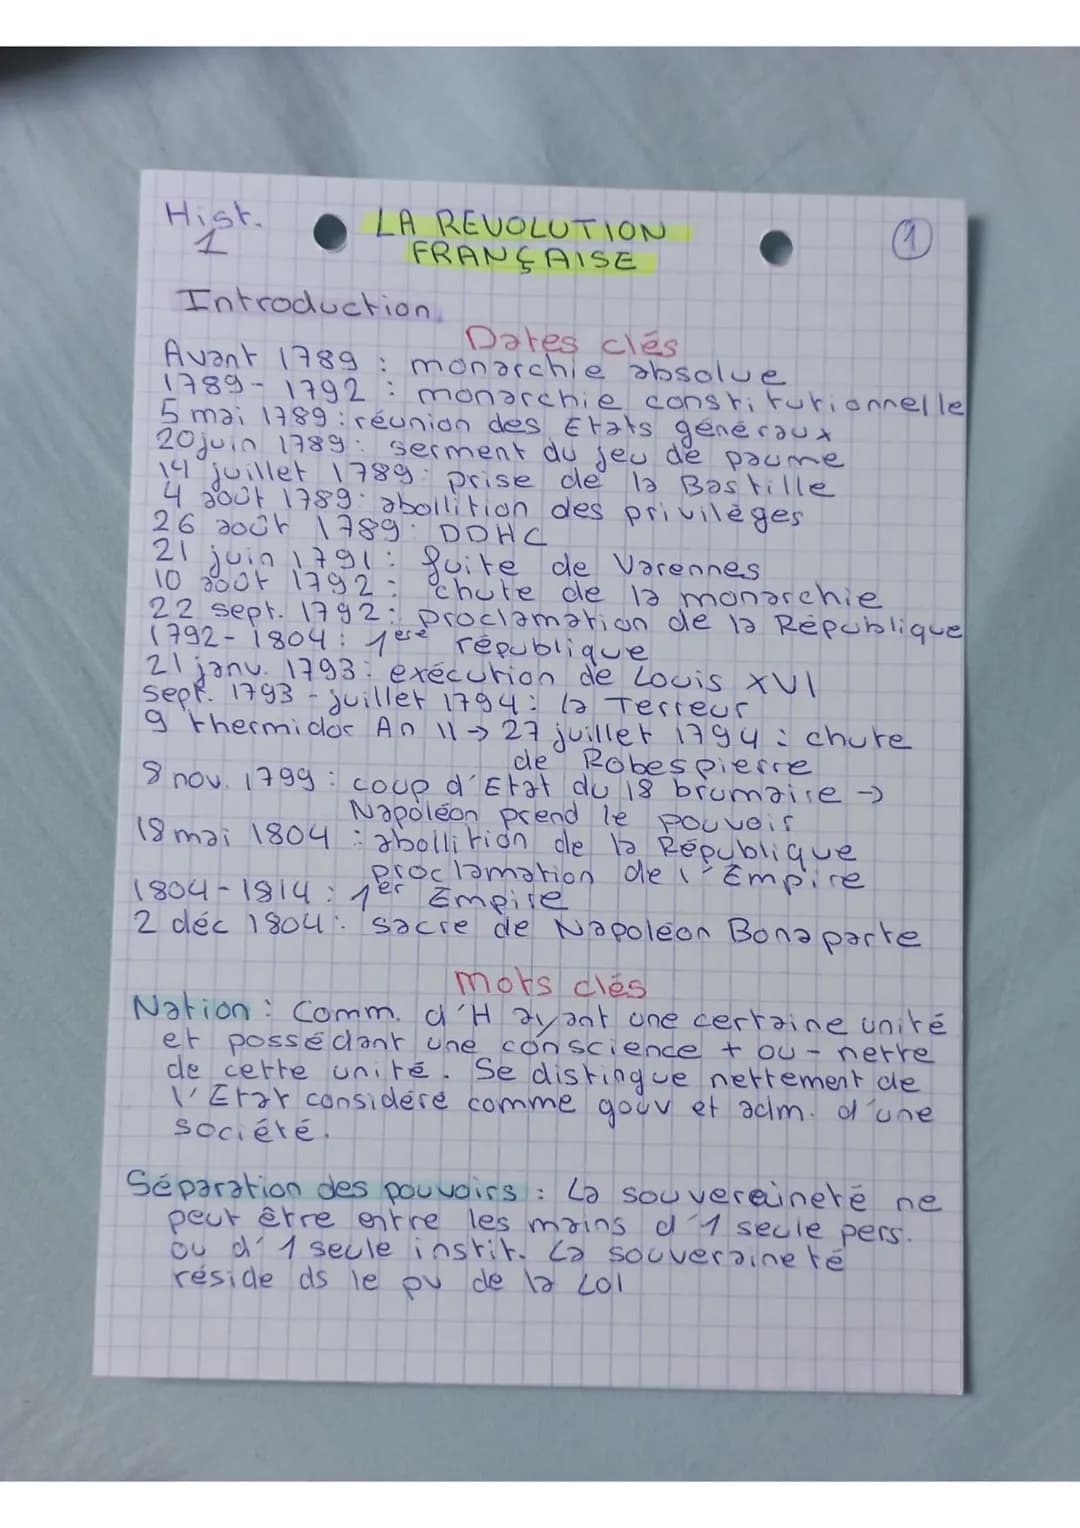 Hist.
1
LA REVOLUTION
FRANÇAISE
1
Introduction
Dates clés
Avant 1789 : monarchie absolue
1789-1792 : monarchie constitutionnelle
5 mai 1789 : réunion des Etats généraux
20 juin 1789 : serment du jeu de paume
14 juillet 1789 : prise de la Bastille
4 août 1789 : abollition des privilèges
26 août 1789 : DDHC
21 juin 1791 : fuite de Varennes
10 août 1792 : chute de la monarchie
22 sept. 1792 : proclamation de la République
1792-1804 : 1ère république
21 janv. 1793 : exécution de Louis XVI
sept. 1793 - juillet 1794 : la Terreur
9 thermidor An II → 27 juillet 1794 : chute
de Robespierre
8 nov. 1799 : coup d'Etat du 18 brumaire →
Napoléon prend le pouvoir
18 mai 1804 : abollition de la République
proclamation de l'Empire
1804-1814 : 1er Empire
2 déc 1804 : sacre de Napoléon Bonaparte
Mots clés
Nation : Comm. d'H ayant une certaine unité
et possédant une conscience + ou - nette
de cette unité. Se distingue nettement de
l'Etat considéré comme gouv et adm. d'une
société.
Séparation des pouvoirs : La souveraineté ne
peut être entre les mains d'1 seule pers.
ou d'1 seule instit. La souveraineté
réside ds le pv de la LOI